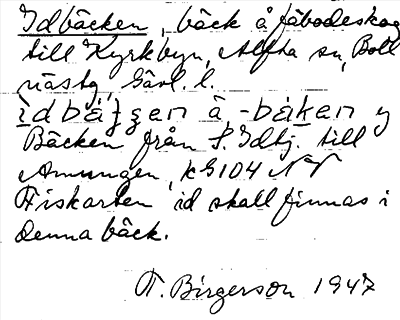 Idbäcken, bäck å fäbodeskog
till Kyrkbyn, Alfta sn, Boll
näs tg, Gävl. l.
å -bäken
Bäcken från S. Idtj. till
Amungen, kG104 NV
Fiskarten id skall finnas i
denna bäck.
T. Birgerson 1947